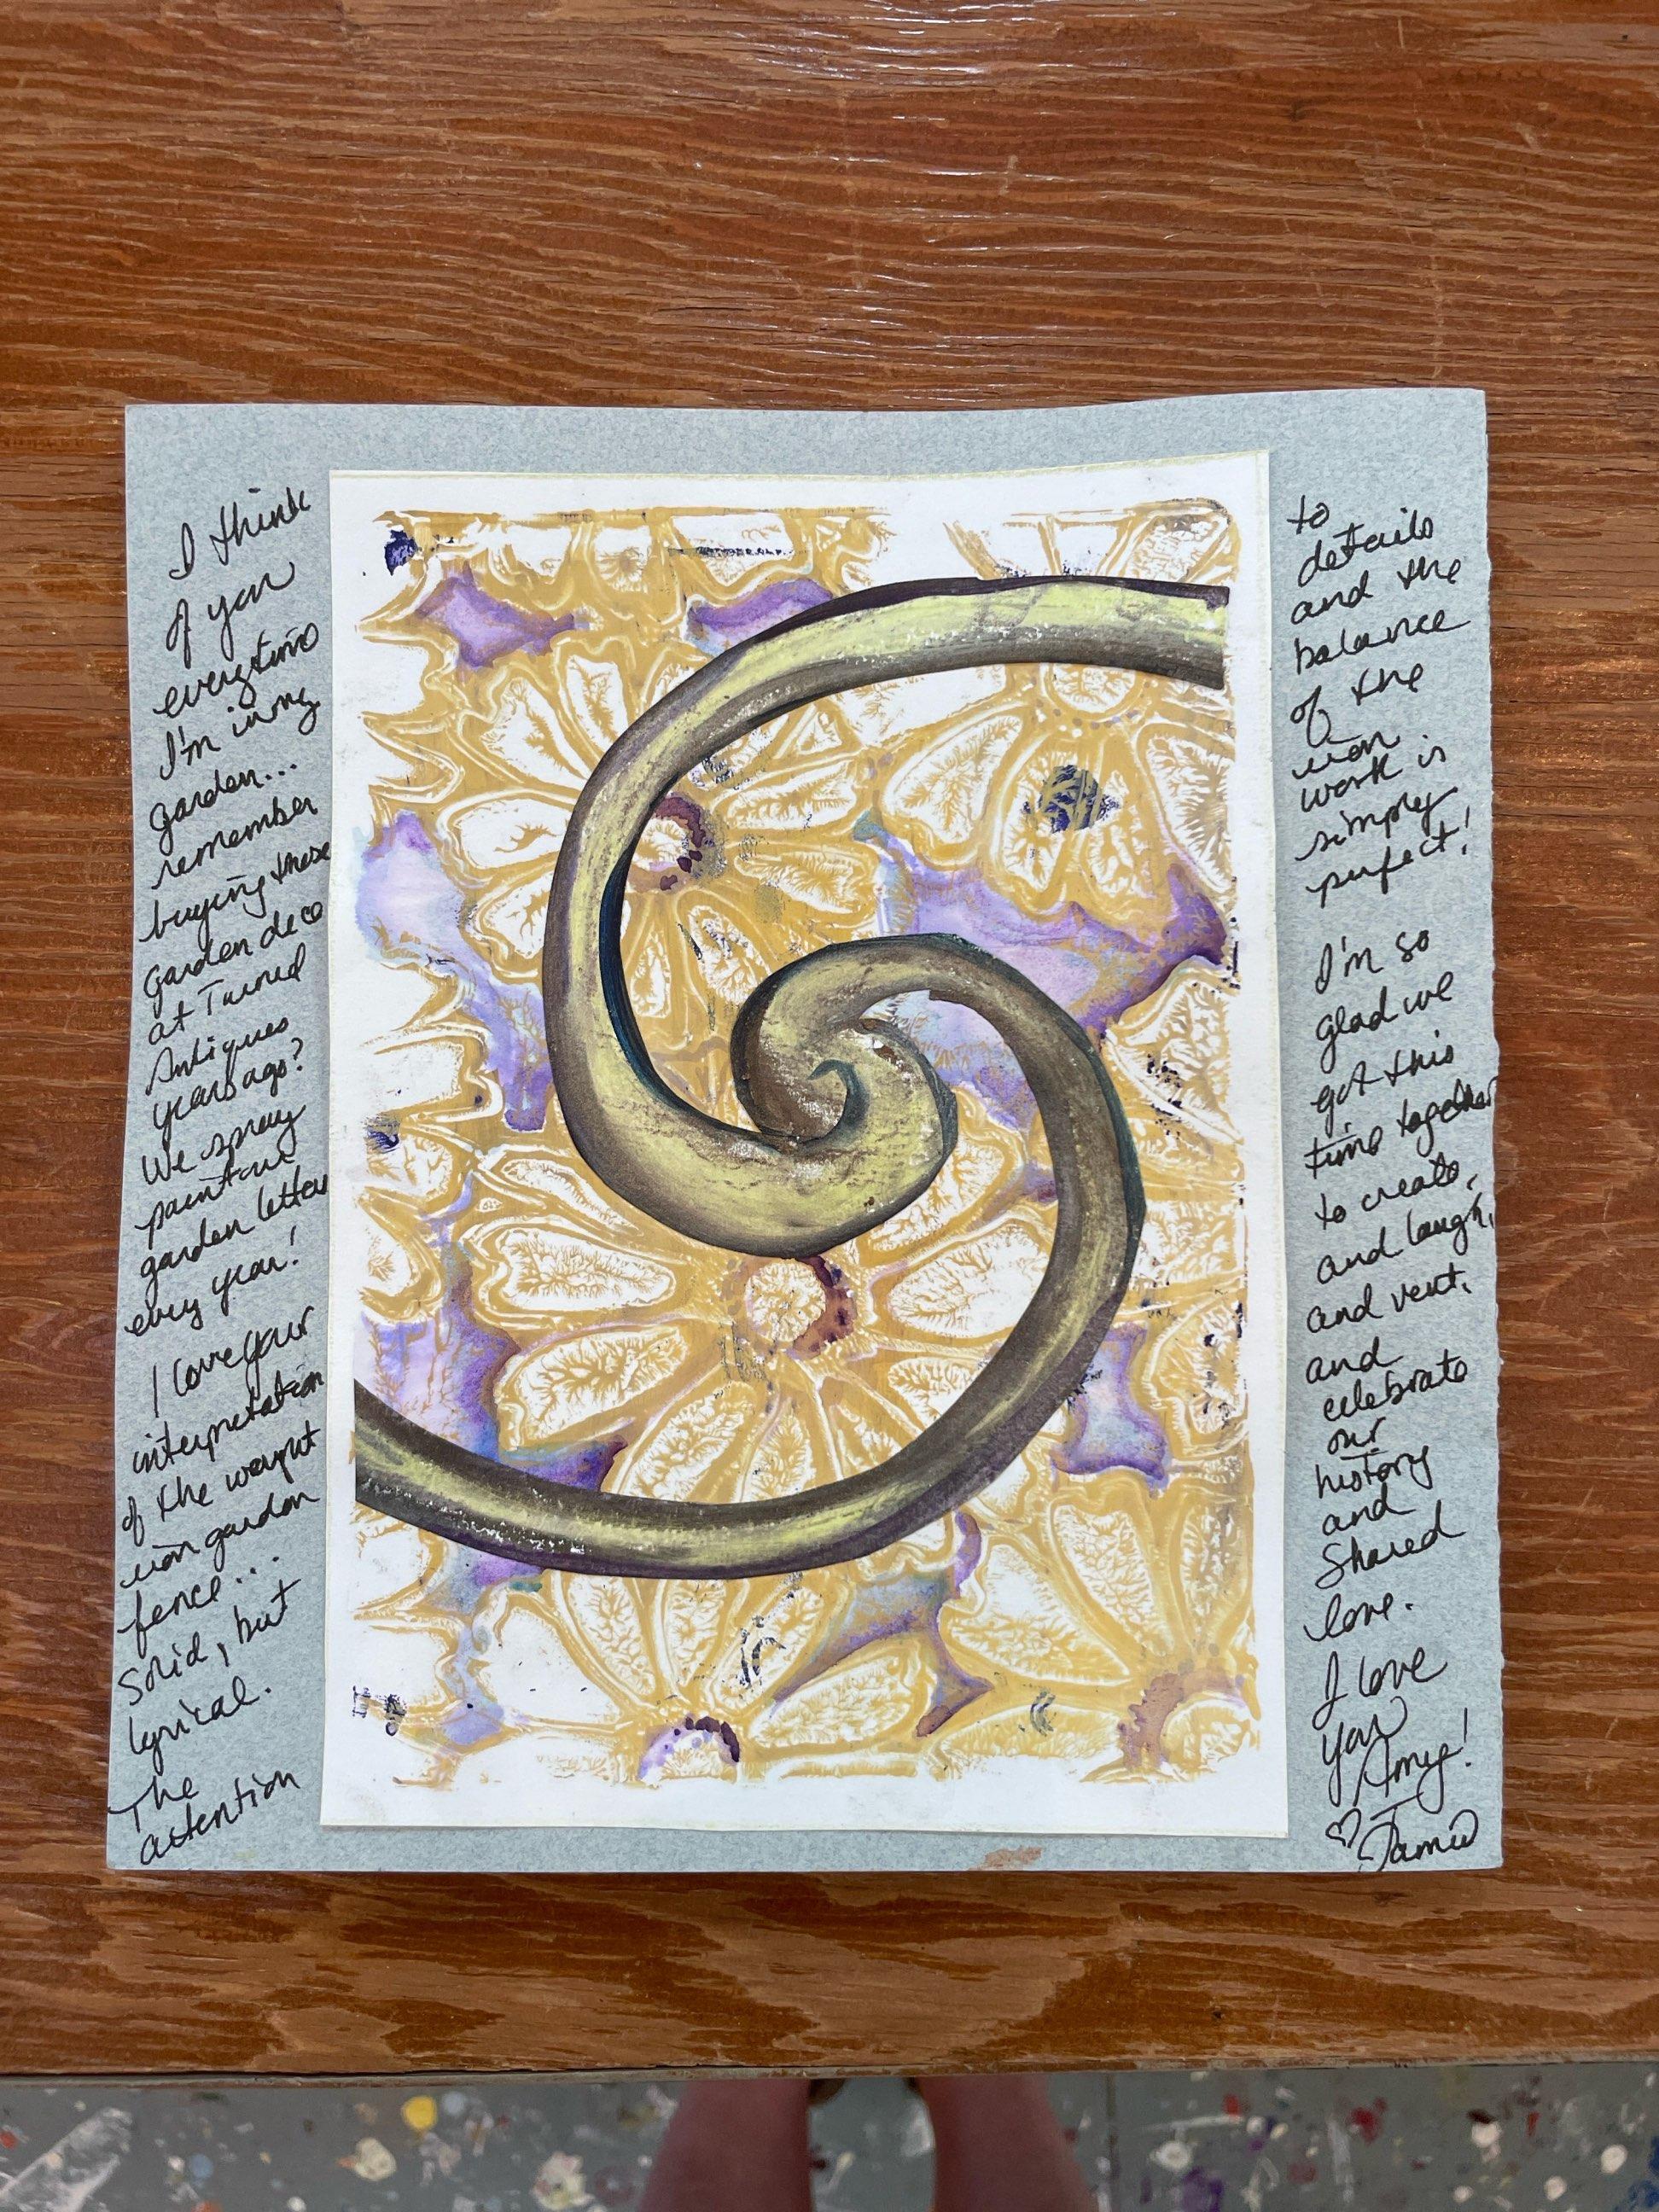 I think
of you
everytime
I'm in my
garden...
remember
buying these
garden deco
at
Antiques
years ago?
We spray
paint our
garden letters
every year!
I love your
interpretation
of the wrought
iron garden
fence...
Solid, but
lyrical.
The
attention
to
details
and the
balance
of the
iron
work is
simply
perfect!
I'm so
glad we
got this
time together
to create,
and laugh,
and vent,
and
celebrate
our
history
and
Shared
love.
I love
you
Amy!
♡ Tamie